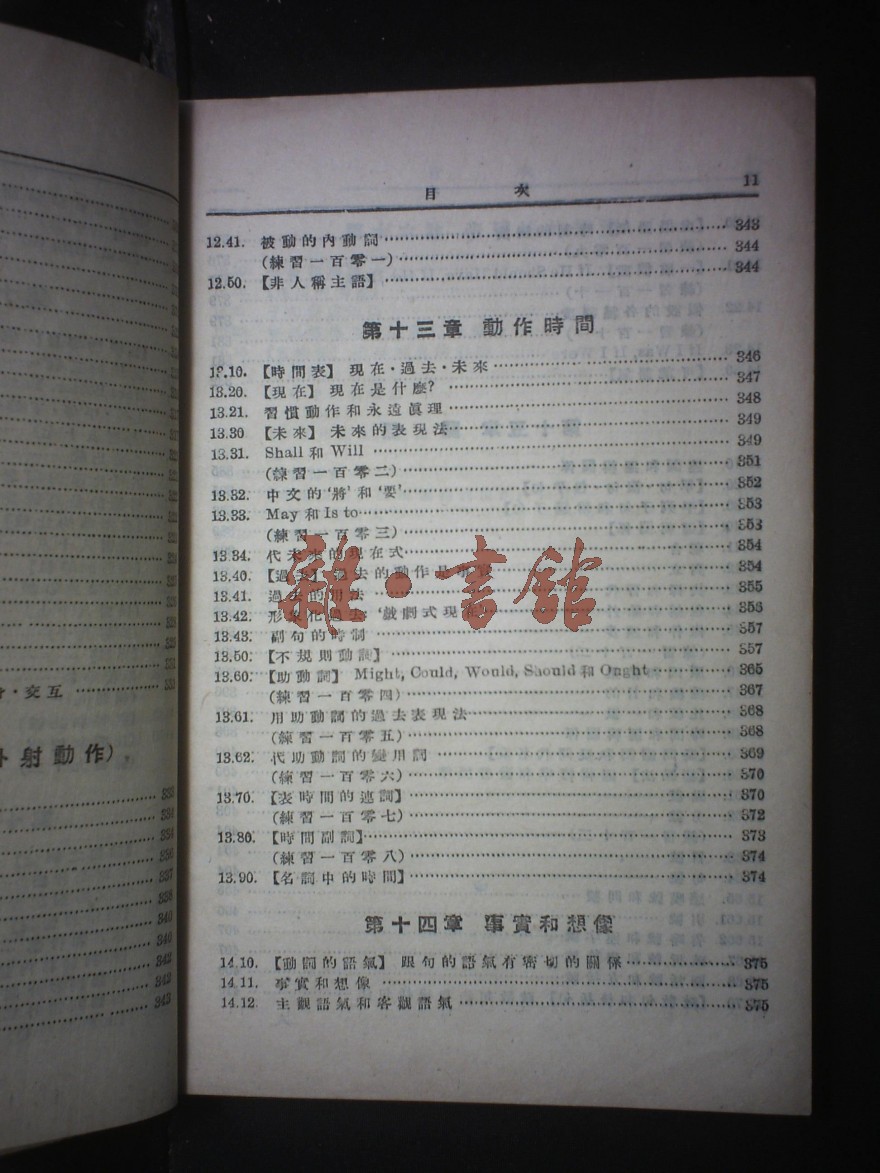 目次 11
12.41. 被動的內動詞 343
(練習一百零一) 344
12.50. 【非人稱主語】 344
第十三章 動作時間
13.10. 【時間表】 現在·過去·未來 346
13.20. 【現在】 現在是什麼? 347
13.21. 習慣動作和永遠眞理 348
13.30 【未來】 未來的表現法 349
13.31. Shall 和 Will 349
(練習一百零二) 351
13.32. 中文的‘將’和‘要’ 352
13.33. May 和 Is to 353
(練習一百零三) 353
13.34. 代未來的現在式 354
13.40. 【過去】 過去的動作是事實 354
13.41. 過去的用法 355
13.42. 形象化過去: ‘戲劇式現在’ 356
13.43. 副句的時制 357
13.50. 【不規則動詞】 357
13.60. 【助動詞】 Might, Could, Would, Should 和 Ought 365
(練習一百零四) 367
13.61. 用助動詞的過去表現法 368
(練習一百零五) 368
13.62. 代助動詞的變用詞 369
(練習一百零六) 370
13.70. 【表時間的連詞】 370
(練習一百零七) 372
13.80. 【時間副詞】 373
(練習一百零八) 374
13.90. 【名詞中的時間】 374
第十四章 事實和想像
14.10. 【動詞的語氣】 跟句的語氣有密切的關係 375
14.11. 事實和想像 375
14.12 主觀語氣和客觀語氣 375
·交互
射動作)
333
334
334
336
337
338
340
340
342
342
343
雜·書館